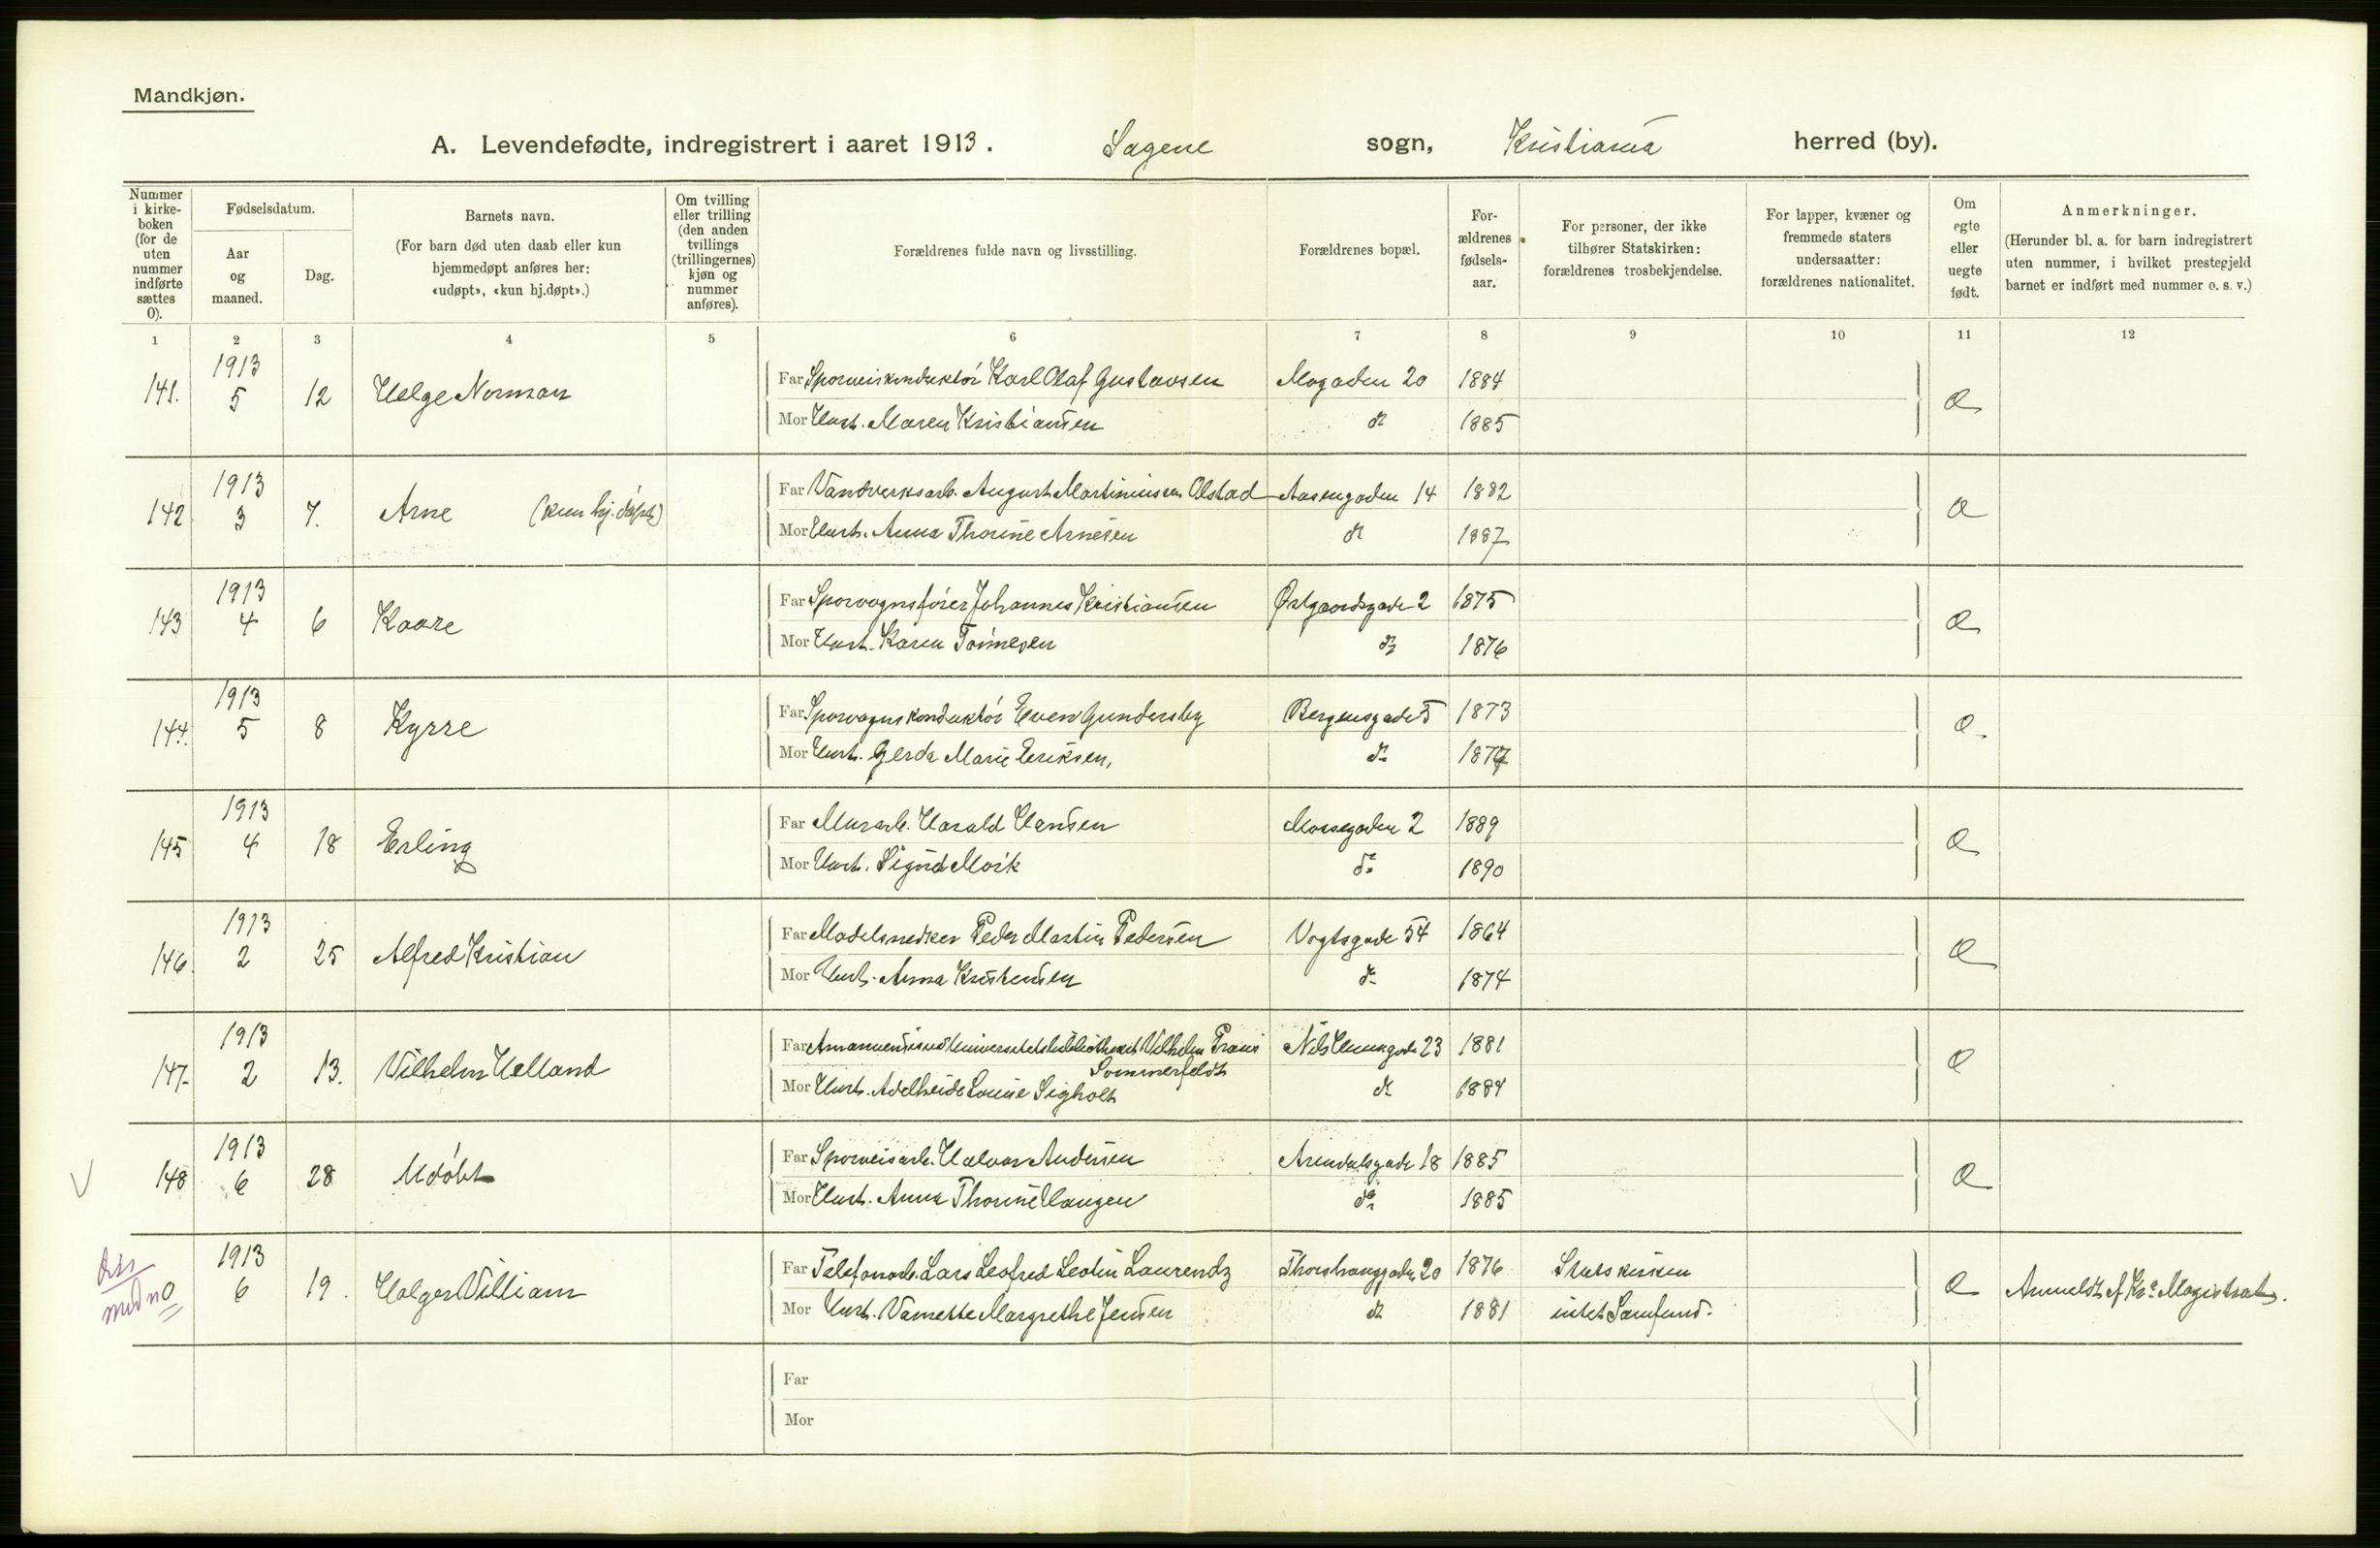 Mandkjøn.
A. Levendefødte, indregistrert i aaret 1913. Sagene sogn, Kristiania herred (by).
Nummer i kirke-boken (for de uten nummer indførte sættes 0).
Fødselsdatum.
Aar og maaned.
Dag.
Barnets navn.
(For barn død uten daab eller kun hjemmedøpt anføres her: «udøpt», «kun hj.døpt».)
Om tvilling eller trilling (den anden tvillings (trillingernes) kjøn og nummer anføres).
Forældrenes fulde navn og livsstilling.
Forældrenes bopæl.
For-ældrenes fødsels-aar.
For personer, der ikke tilhører Statskirken: forældrenes trosbekjendelse.
For lapper, kvæner og fremmede staters undersaatter: forældrenes nationalitet.
Om egte eller uegte født.
Anmerkninger.
(Herunder bl. a. for barn indregistrert uten nummer, i hvilket prestegjeld barnet er indført med nummer o. s. v.)
1 2 3 4 5 6 7 8 9 10 11 12
141. 1913 5 12 Helge Norman
Far Sporveiskonduktør Karl Olaf Gustavsen Mogaden 20 1884
Mor Hust. Maren Kristiansen do 1885
142 1913 3 7. Arne (kun hj. døpt)
Far Vandverksarb. August Martiniussen Olstad Aasengaden 14 1882
Mor Hust. Anna Thorine Arnesen do 1887
143 1913 4 6 Kaare
Far Sporvognsfører Johannes Kristiansen Østgaardsgade 2 1875
Mor Hust. Karen Tønnesen do 1876
144. 1913 5 8 Kyrre
Far Sporvognskonduktør Even Gundersby Bergensgade 5 1873
Mor Hust. Gerda Marie Eriksen, do
145 1913 4 18 Erling
Far Murarb. Harald Hansen Mossegaden 2 1889
Mor Hust. Sigrid Mørk do 1890
146. 1913 2 25 Alfred Kristian
Far Modelsnedker Peder Martin Pedersen Vogtsgade 54 1864
Mor Hust. Anna Kristensen do 1874
147. 1913 2 13. Vilhelm Helland
Far Amanuensis ved Universitetsbibliotheket Vilhelm Preus Sommerfeldt 23 1881
Mor Hust. Adelheide Louise Sigholt do 1884
148 1913 6 28 Udøbt
Far Sporveisarb. Halvor Andersen Arendalsgade 18 1885
Mor Hust. Anna Thorine Haugen do 1885
0 1913 6 19. Holger William
Far Telefonarb. Lars Leofred Leolin Laurendz Thorshauggaden 20 1876 Statskirken
Mor Hust. Margrethe Jensen do 1881 intet Samfund.
Anmeldt af Kra Magistrat.
Far
Mor